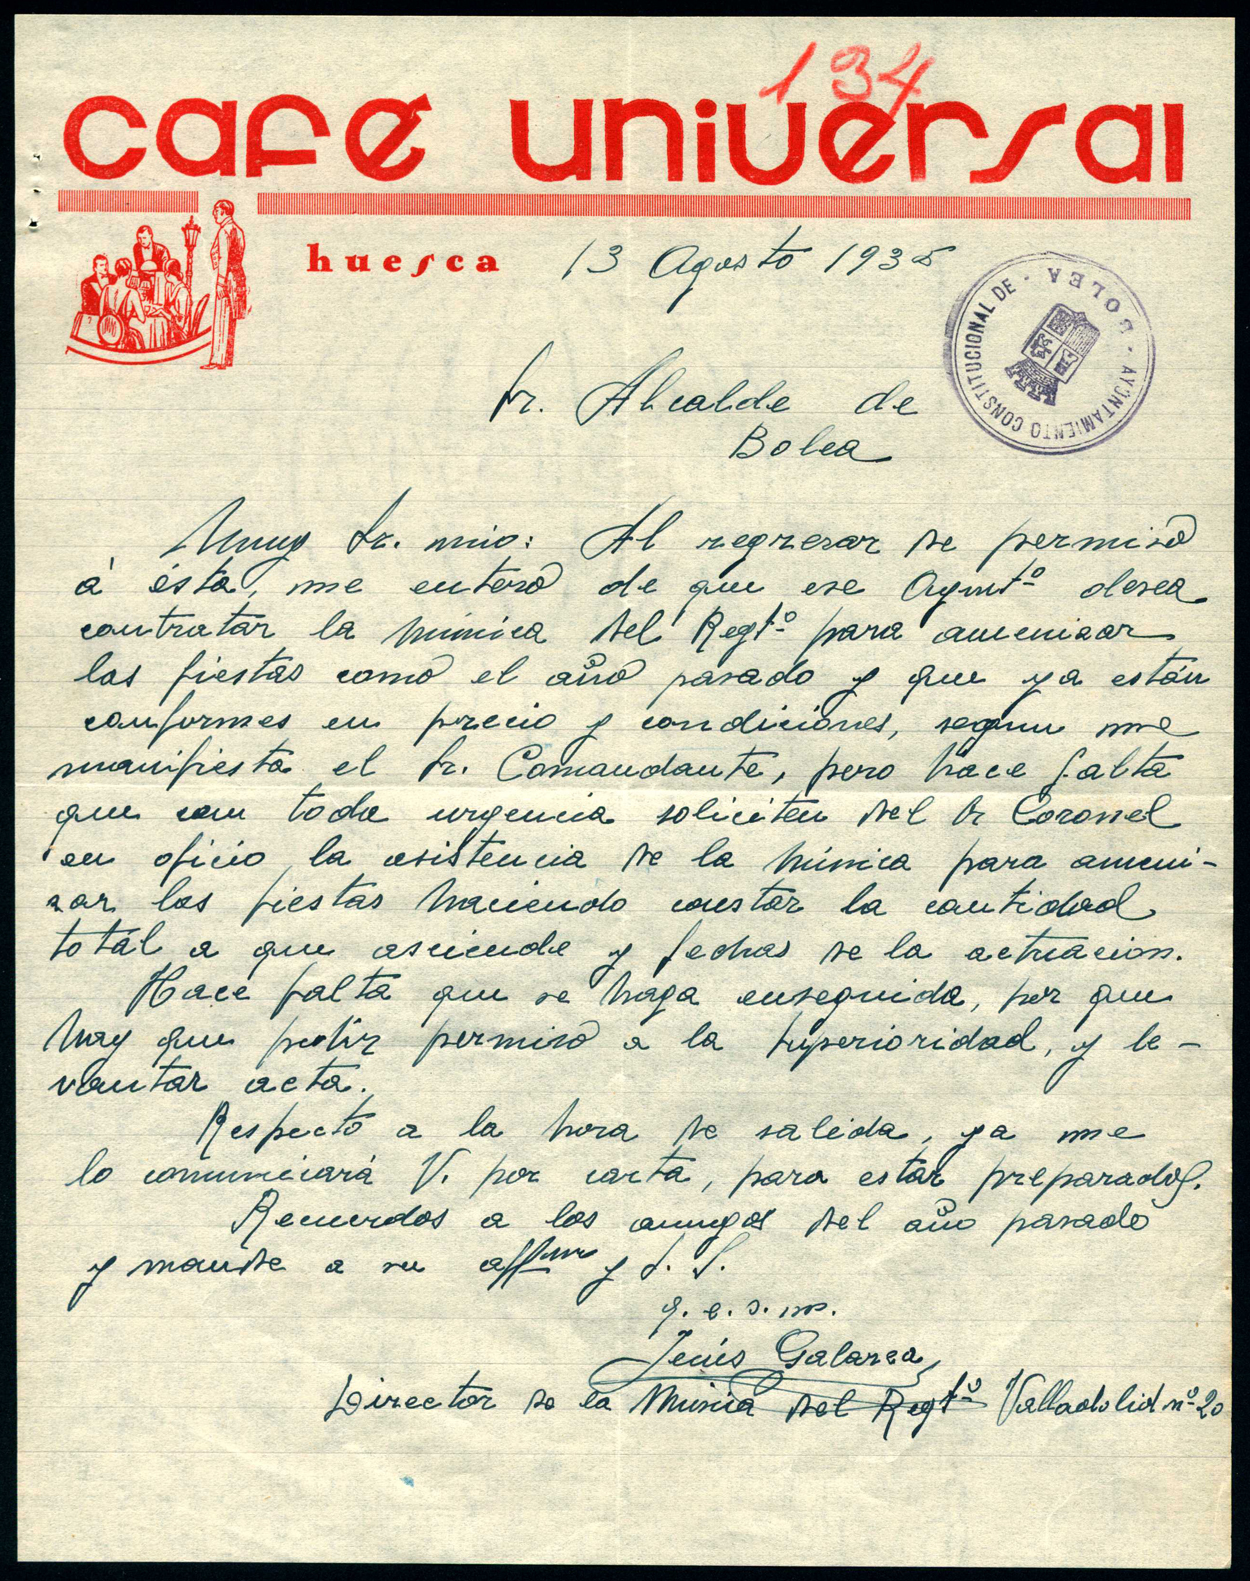 134
café universal
huesca 13 Agosto 1935
AYUNTAMIENTO CONSTITUCIONAL DE - BOLEA -
Sr. Alcalde de
Bolea
Muuy Sr. mio: Al regresar de permiso
á ésta, me entero de que ese Aymtº desea
contratar la música del Regtº para amenizar
las fiestas como el año pasado y que ya están
conformes en precio y condiciones, segun me
manifiesta el Sr. Comandante, pero hace falta
que con toda urgencia soliciten del Sr Coronel
en oficio la asistencia de la Música para ameni-
zar las fiestas haciendo constar la cantidad
total a que asciende y fechas de la actuacion.
Hace falta que se haga enseguida, por que
hay que pedir permiso a la Superioridad, y le-
vantar acta.
Respecto a la hora de salida, ya me
lo comunicará V. por carta, para estar preparados.
Recuerdos a los amigos del año pasado
y mande a su affmo y S. S.
q. e. s. m.
Jesús Galarza
Director de la Música del Regtº Valladolid nº 20